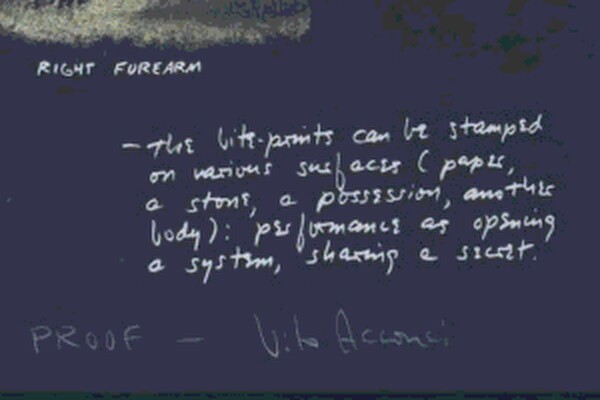 RIGHT FOREARM
- The bite-prints can be stamped
on various surfaces (paper,
a stone, a possession, another
body): performance as opening
a system, sharing a secret.
PROOF - Vito Acconci